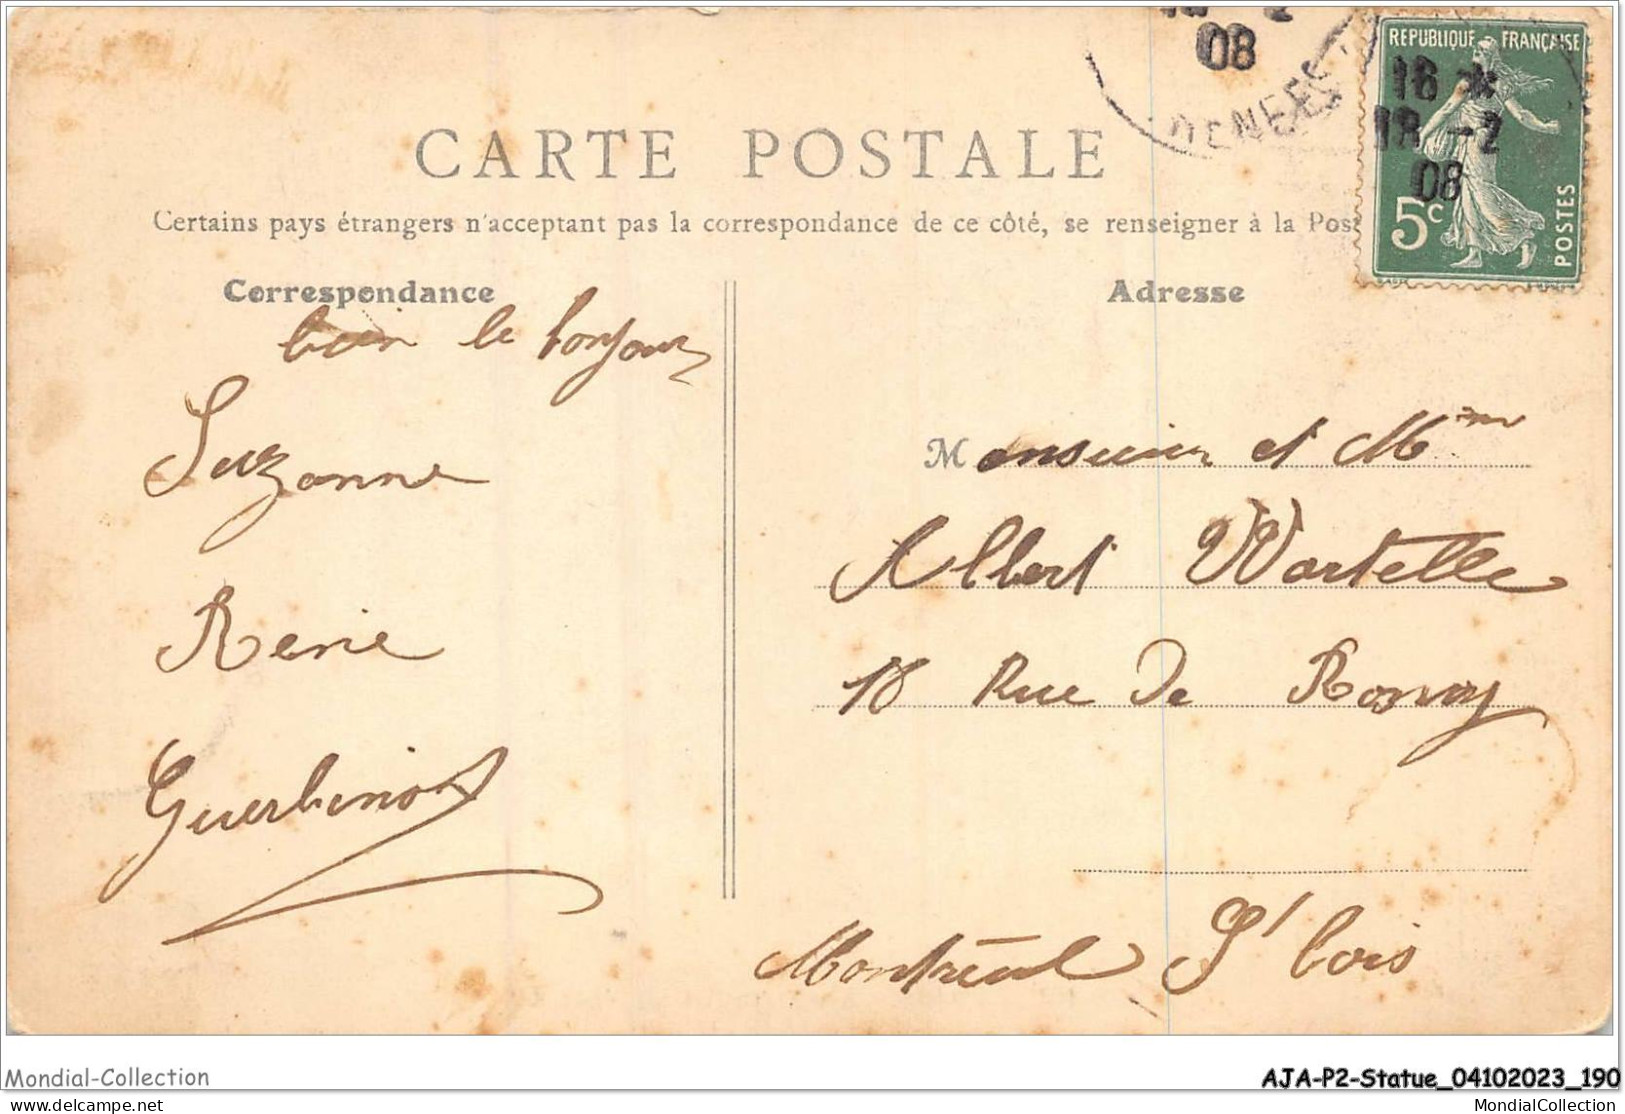 08
DENEES
REPUBLIQUE FRANÇAISE
16 *
18 -2
08
5c
POSTES
CARTE POSTALE
Certains pays étrangers n'acceptant pas la correspondance de ce côté, se renseigner à la Pos
Correspondance
Adresse
bien le bonjour
Suzanne
René
Guerbinot
Monsieur et Mme
Albert Wartelle
18 Rue De Rosny
Montreuil St bois
Mondial-Collection
AJA-P2-Statue_04102023_190
www.delcampe.net
MondialCollection